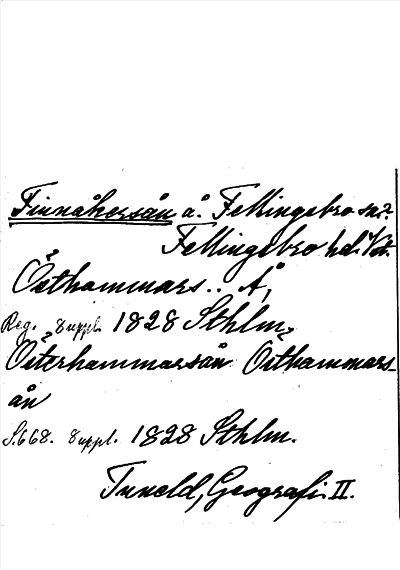 Finnåkersån å. Fellingsbro sn?
Fellingsbro hd. Vstm.
Östhammars.. Å,
Reg. Suppl. 1828 Sthlm,
Österhammarsån Östhammars-
ån
S.668. Suppl. 1828 Sthlm.
Tuneld, Geografi. II.